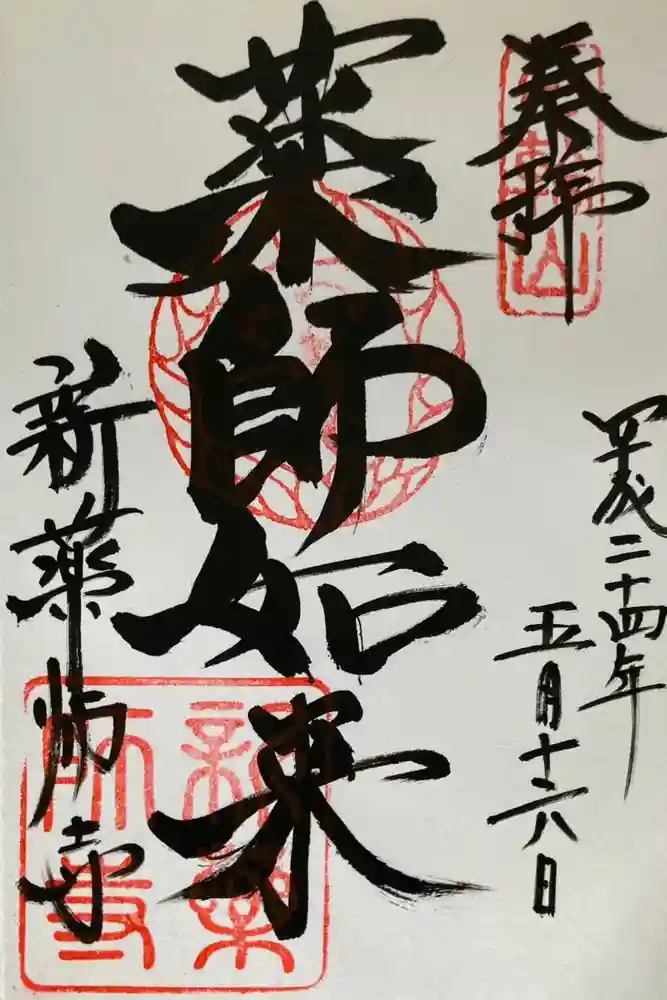 奉拝
平成二十四年
五月十六日
薬師如来
新薬師寺
新薬師寺